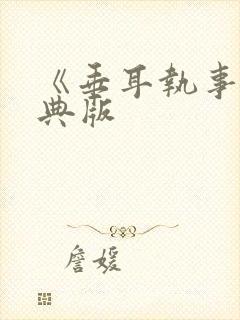 《垂耳執事
典版
詹媛